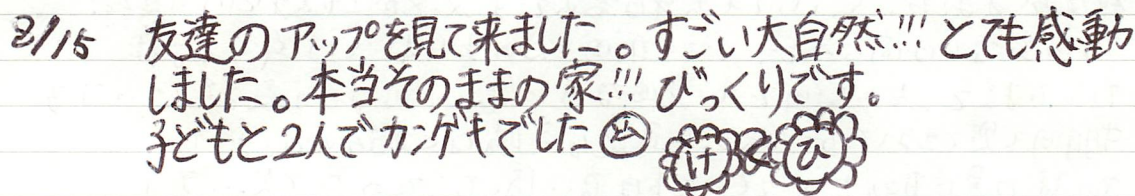 2/15 友達のアップを見て来ました。すごい大自然!!! とても感動
しました。本当そのままの家!!! びっくりです。
子どもと2人でカンゲキでした
け ひ